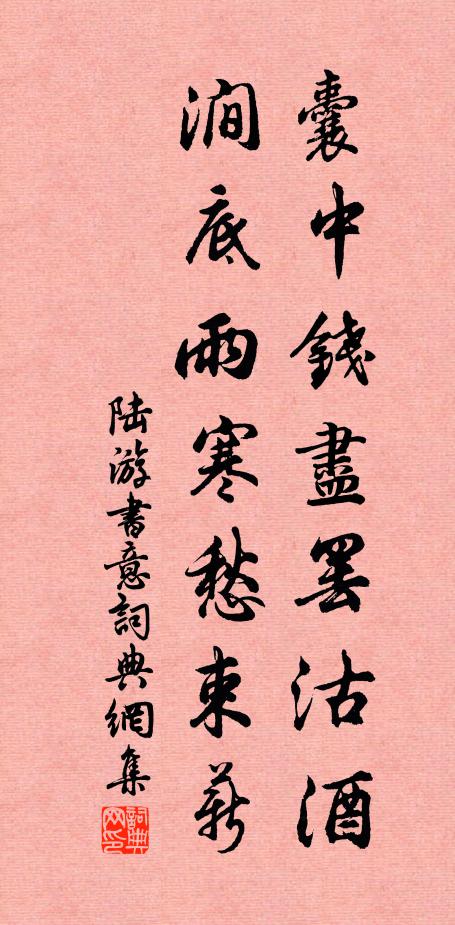 囊中錢盡罢沽酒
澗底雨寒愁束薪
陆游書意詞典網集
詞典网印